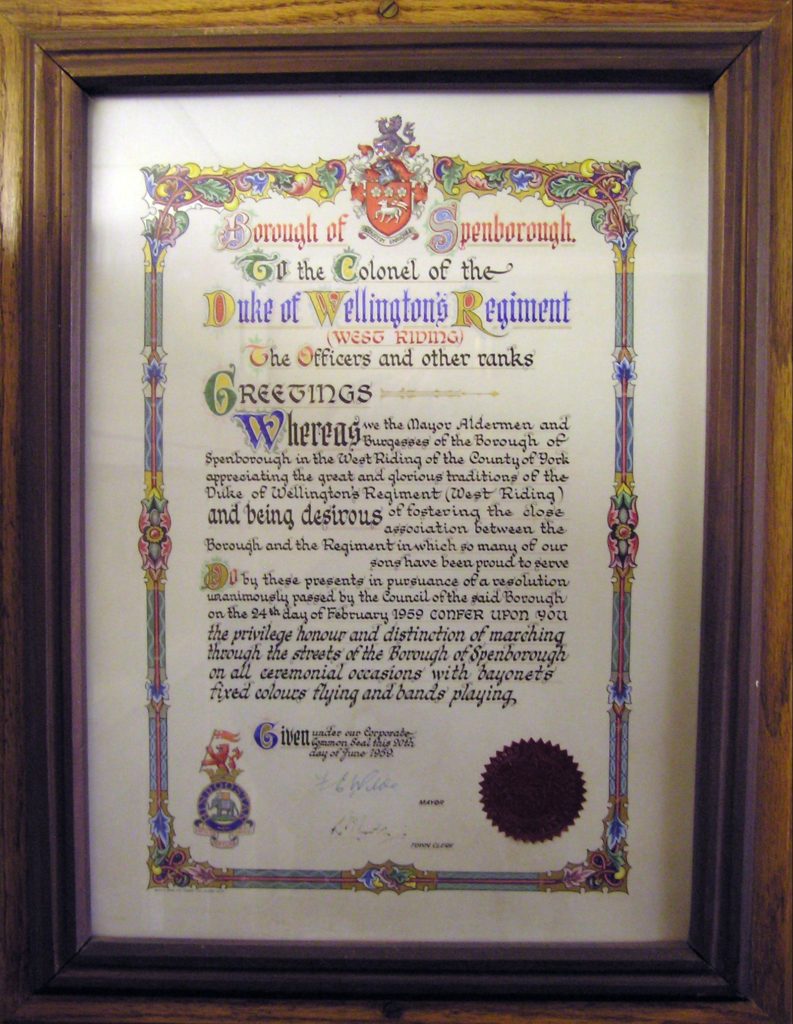 Borough of Spenborough.
To the Colonel of the
Duke of Wellington's Regiment
(WEST RIDING)
The Officers and other ranks
GREETINGS
Whereas we the Mayor Aldermen and
Burgesses of the Borough of
Spenborough in the West Riding of the County of York
appreciating the great and glorious traditions of the
Duke of Wellington's Regiment (West Riding)
and being desirous of fostering the close
association between the
Borough and the Regiment in which so many of our
sons have been proud to serve
Do by these presents in pursuance of a resolution
unanimously passed by the Council of the said Borough
on the 24th day of February 1959 CONFER UPON YOU
the privilege honour and distinction of marching
through the streets of the Borough of Spenborough
on all ceremonial occasions with bayonets
fixed colours flying and bands playing,
Given under our Corporate
Common Seal this 20th
day of June 1959.
MAYOR
TOWN CLERK